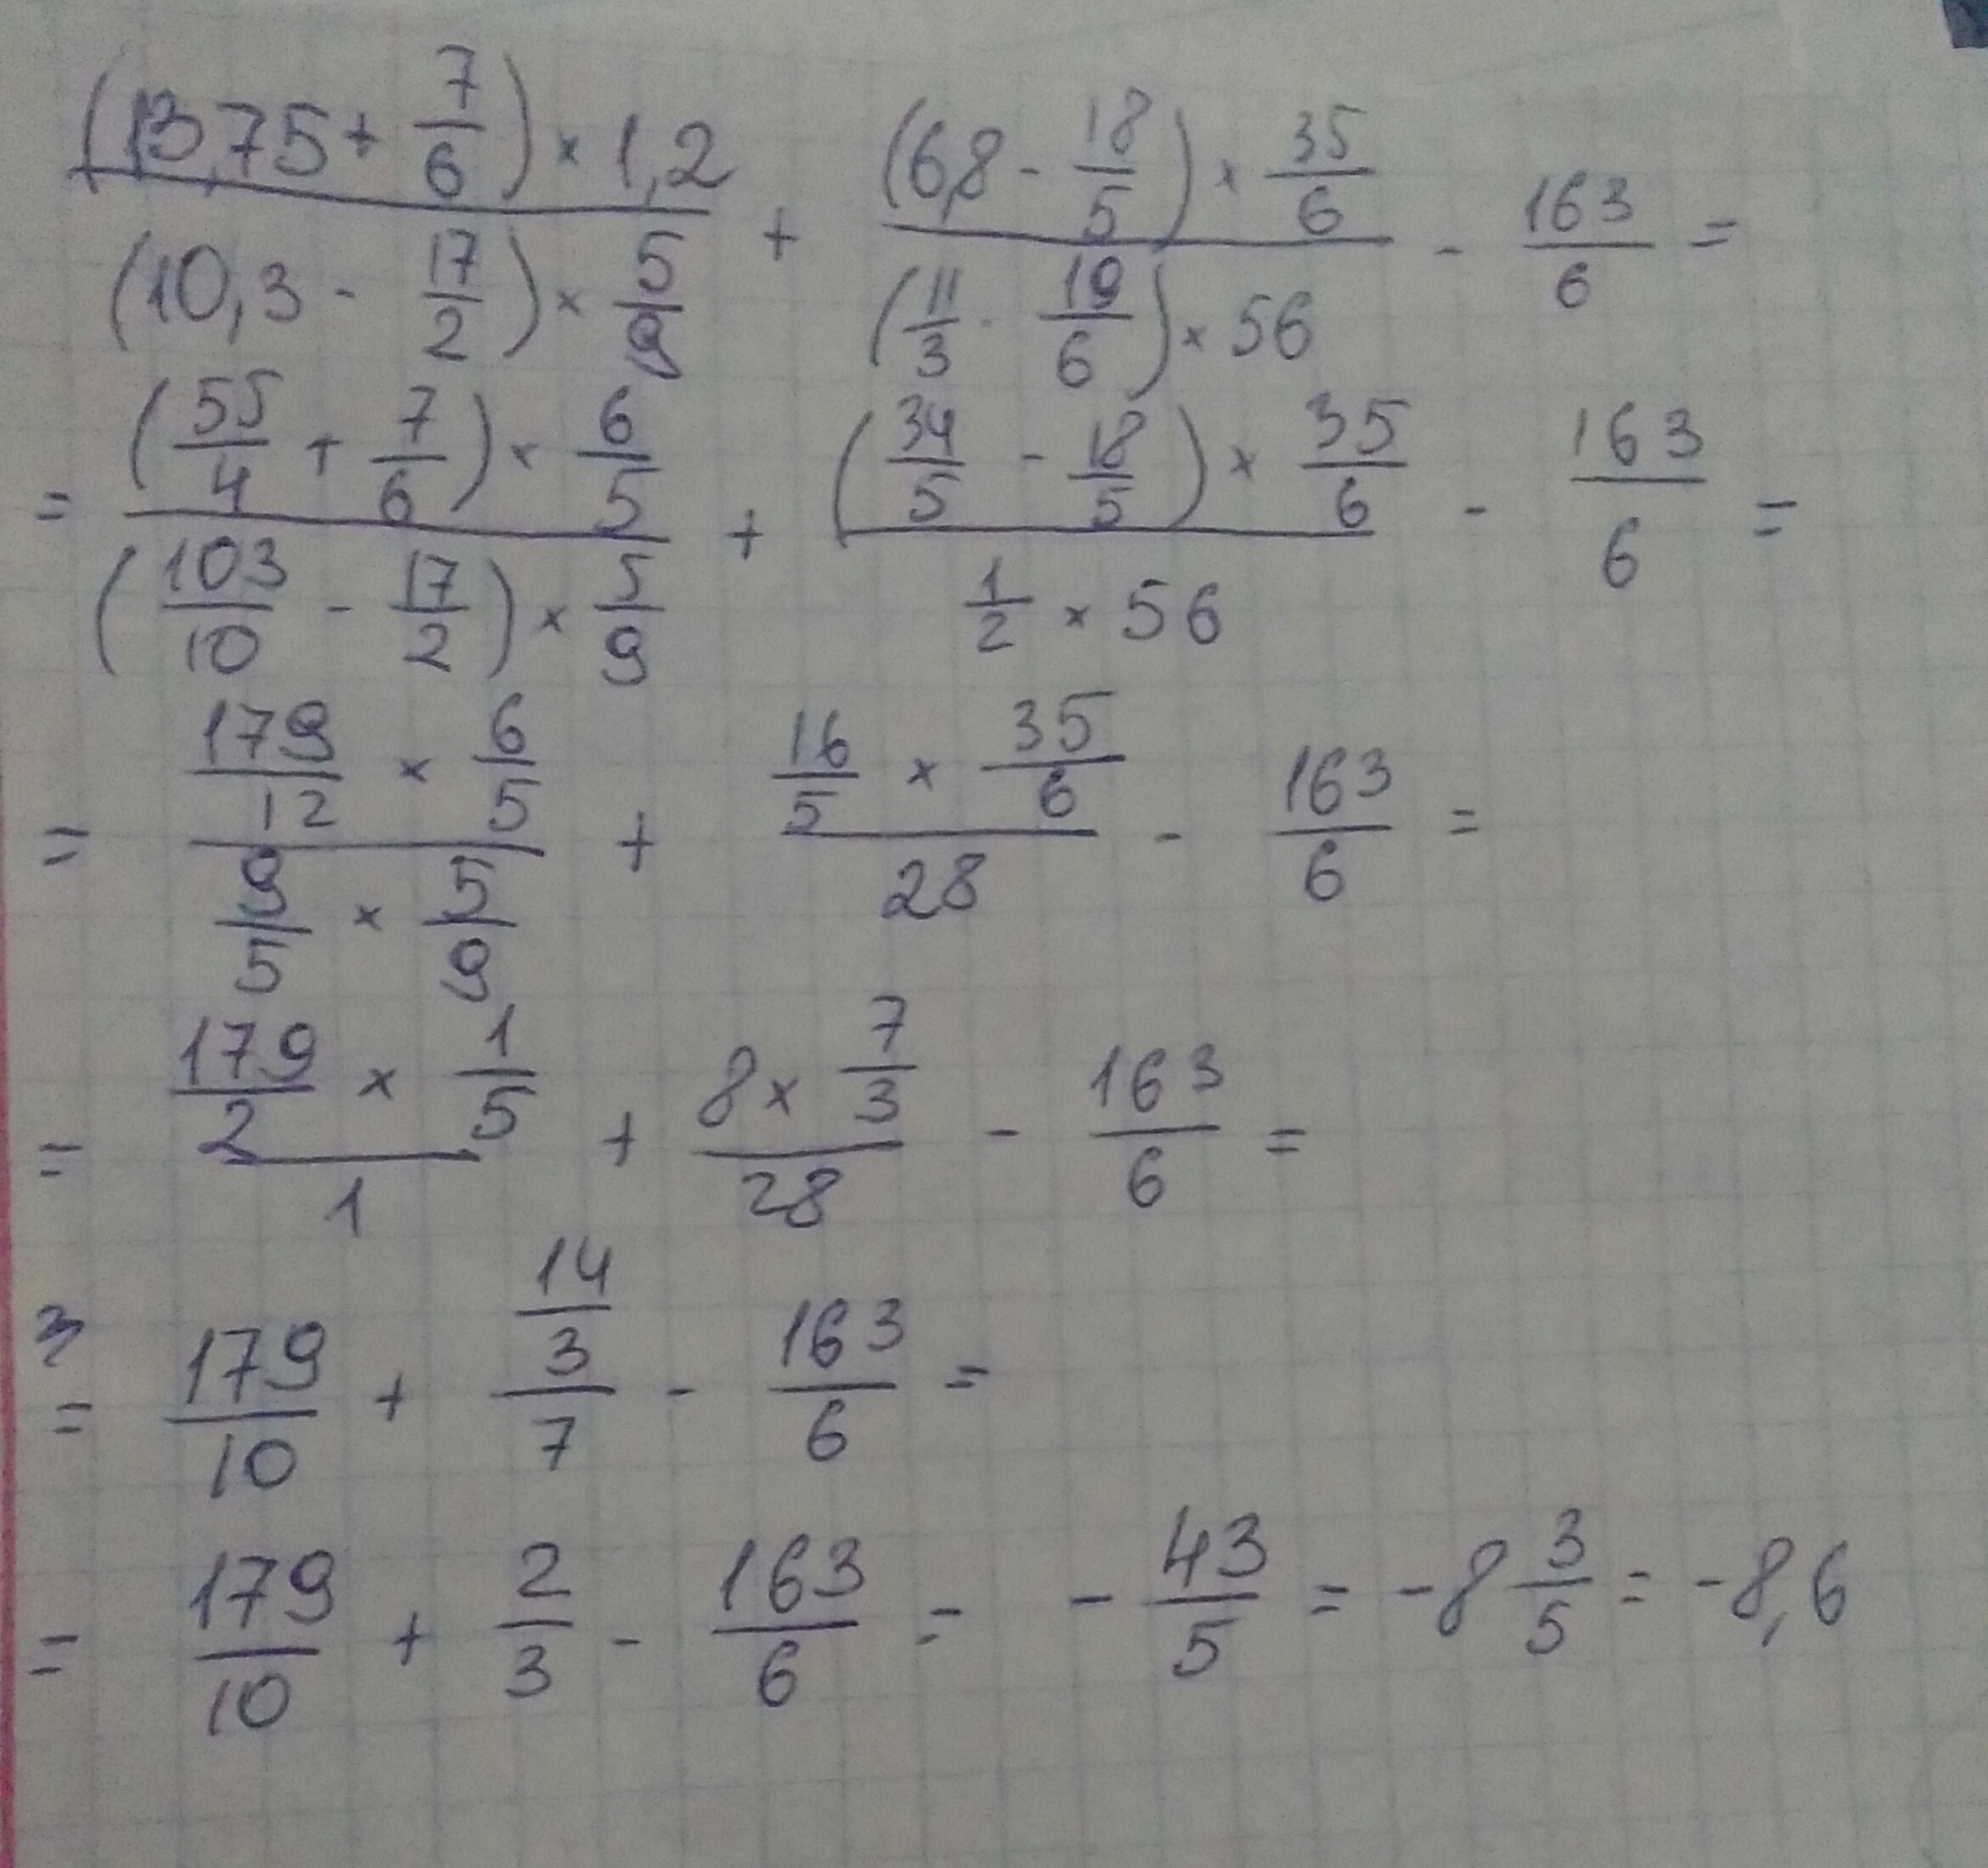 ((13,75 + 7/6) × 1,2) / ((10,3 - 17/2) × 5/9) + ((6,8 - 18/5) × 35/6) / ((11/3 - 19/6) × 56) - 163/6 =
= ((55/4 + 7/6) × 6/5) / ((103/10 - 17/2) × 5/9) + ((34/5 - 18/5) × 35/6) / (1/2 × 56) - 163/6 =
= (179/12 × 6/5) / (9/5 × 5/9) + (16/5 × 35/6) / 28 - 163/6 =
= (179/2 × 1/5) / 1 + (8 × 7/3) / 28 - 163/6 =
= 179/10 + (14/3) / 7 - 163/6 =
= 179/10 + 2/3 - 163/6 = - 43/5 = -8 3/5 = -8,6